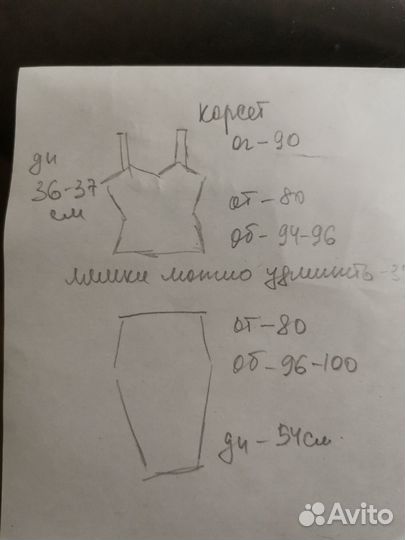 корсет
ог-90
ди
36-37
см
от-80
об-94-96
лямки можно удлинить-3
от-80
об-96-100
ди-54см.
Avito